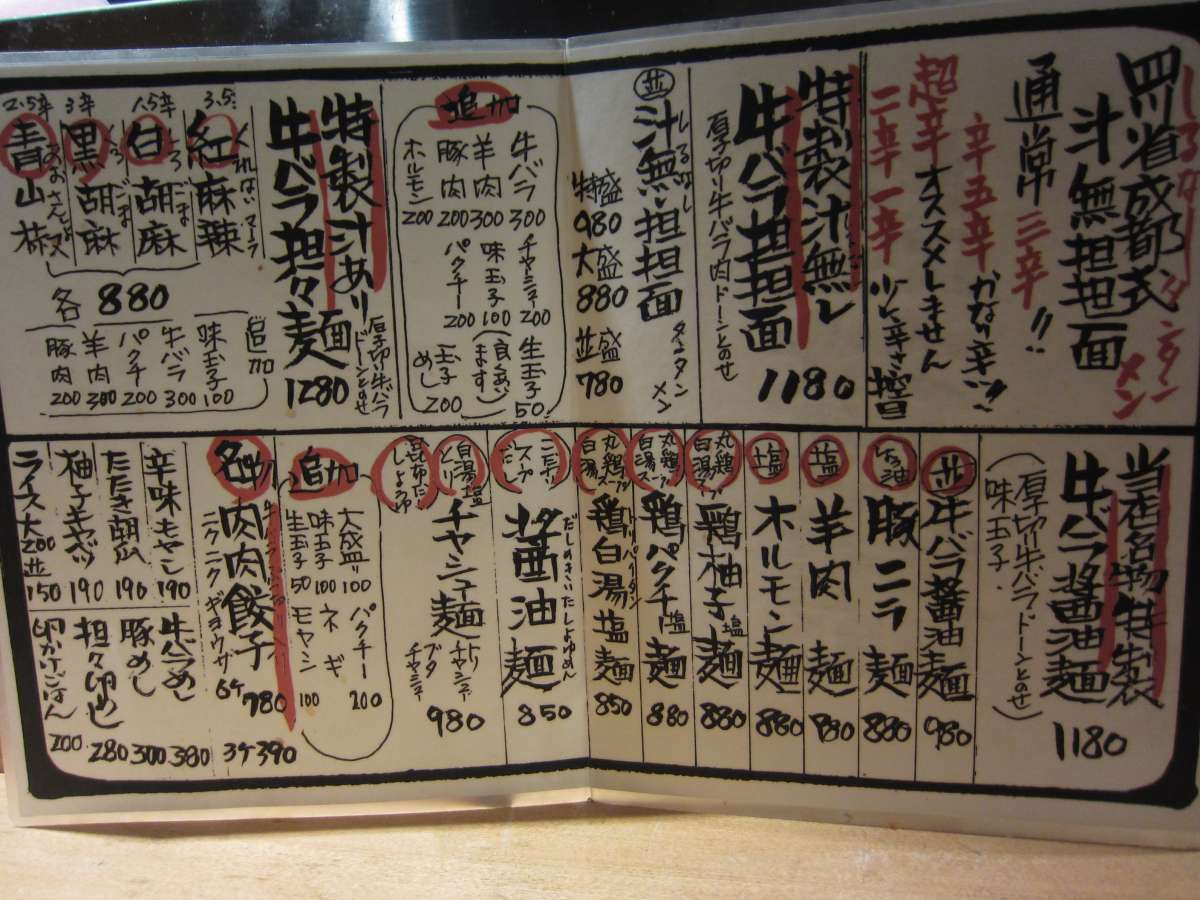 四川省成都式
汁無担担面
しるなし
タンタンメン
通常三辛!!
辛五辛 かなり辛いッ!
超辛 オススメしません
二辛一辛 少し辛さ控目
特製汁無し
牛バラ担担面
厚切り牛バラ肉ドーンとのせ
1180
並
汁無し担担面
しるなし
タンタンメン
特盛 980
大盛 880
並盛 780
追加
牛バラ 300
羊肉 300
豚肉 200
ホルモン 200
チャーシュー 200
味玉子 100
パクチー 200
生玉子 50
(良くあいます)
玉子めし 200
特製汁あり
牛バラ担々麺
厚切り牛バラドーンとのせ
1280
3.5辛
紅麻辣
くれないマーラ
1.5辛
白胡麻
しろごま
3辛
黒胡麻
くろごま
2.5辛
青山椒
あおさんしょう
各880
追加
味玉子 100
牛バラ 300
パクチ 200
羊肉 300
豚肉 200
当店名物特製
牛バラ醤油麺
(厚切り牛バラドーンとのせ)
味玉子
1180
並
牛バラ醤油麺
980
しょう油
豚ニラ麺
880
塩
羊肉麺
880
塩
ホルモン麺
880
丸鶏白湯スープ
鶏柚子塩麺
880
丸鶏白湯スープ
鶏パクチー塩麺
880
丸鶏白湯スープ
鶏白湯塩麺
トリパイタン
850
だしスープ
醤油麺
850
白湯塩とり
昆布だししょうゆ
チャーシュー麺
トリチャーシュー
ブタチャーシュー
980
追加
大盛り 100
味玉子 100
生玉子 50
パクチー 200
ネギ
モヤシ 100
名物
肉肉餃子
ニクニクギョウザ
6ケ 780
3ケ 390
辛味モヤシ 190
たたき胡瓜 190
柚子キャベツ 190
ライス大200
並150
牛バラめし 380
豚めし 300
担々卵めし 280
卵かけごはん 200